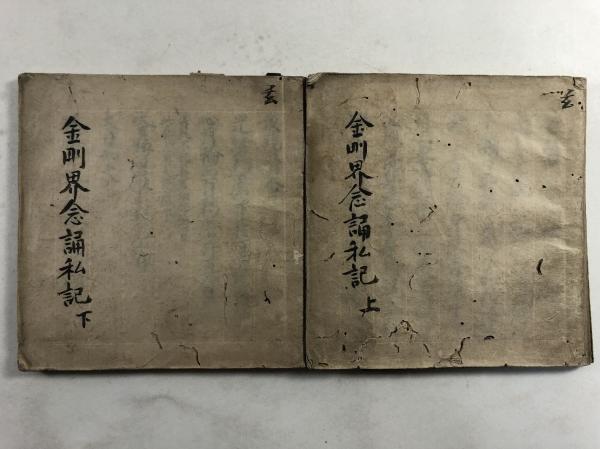 金剛界念誦私記上
金剛界念誦私記下